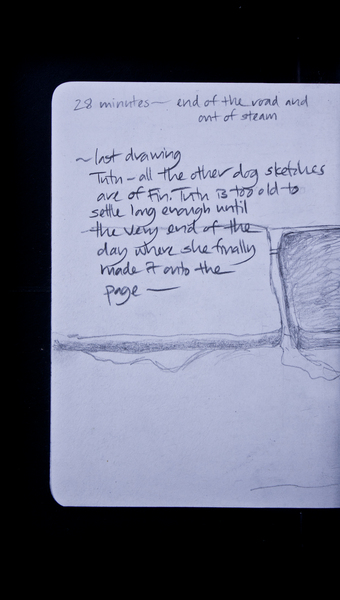 28 minutes — end of the road and
out of steam
~ last drawing
Tutn – all the other dog sketches
are of Fin. Tutn is too old to
settle long enough until
the very end of the
day where she finally
made it onto the
page —